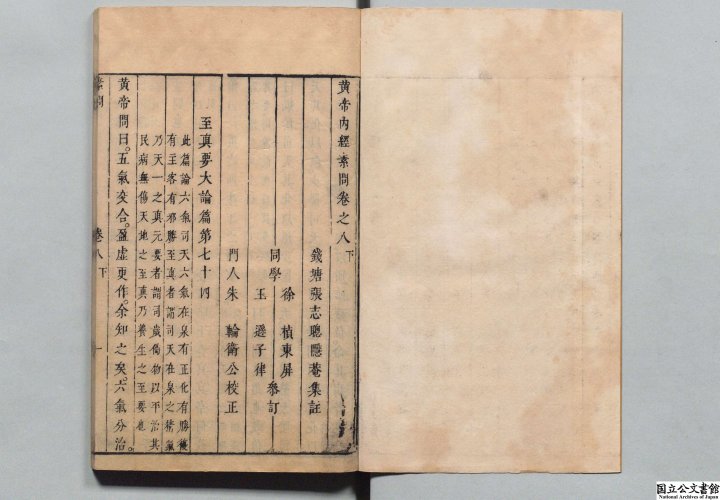 黄帝内經素問卷之八下
錢塘張志聰隱菴集註
同學
徐楨東屏
王遜子律
叅訂
門人朱輪衛公校正
至真要大論篇第七十四
此篇論六氣司天六氣在泉有正化有勝復
有主客有邪勝至真者謂司天在泉之精氣
乃天一之真元要者謂司歲備物以平治其
民病無傷天地之至真乃養生之至要也
黄帝問曰。五氣交合。盈虚更作。余知之矣。六氣分治。
素問
卷八下
一
国立公文書館
National Archives of Japan